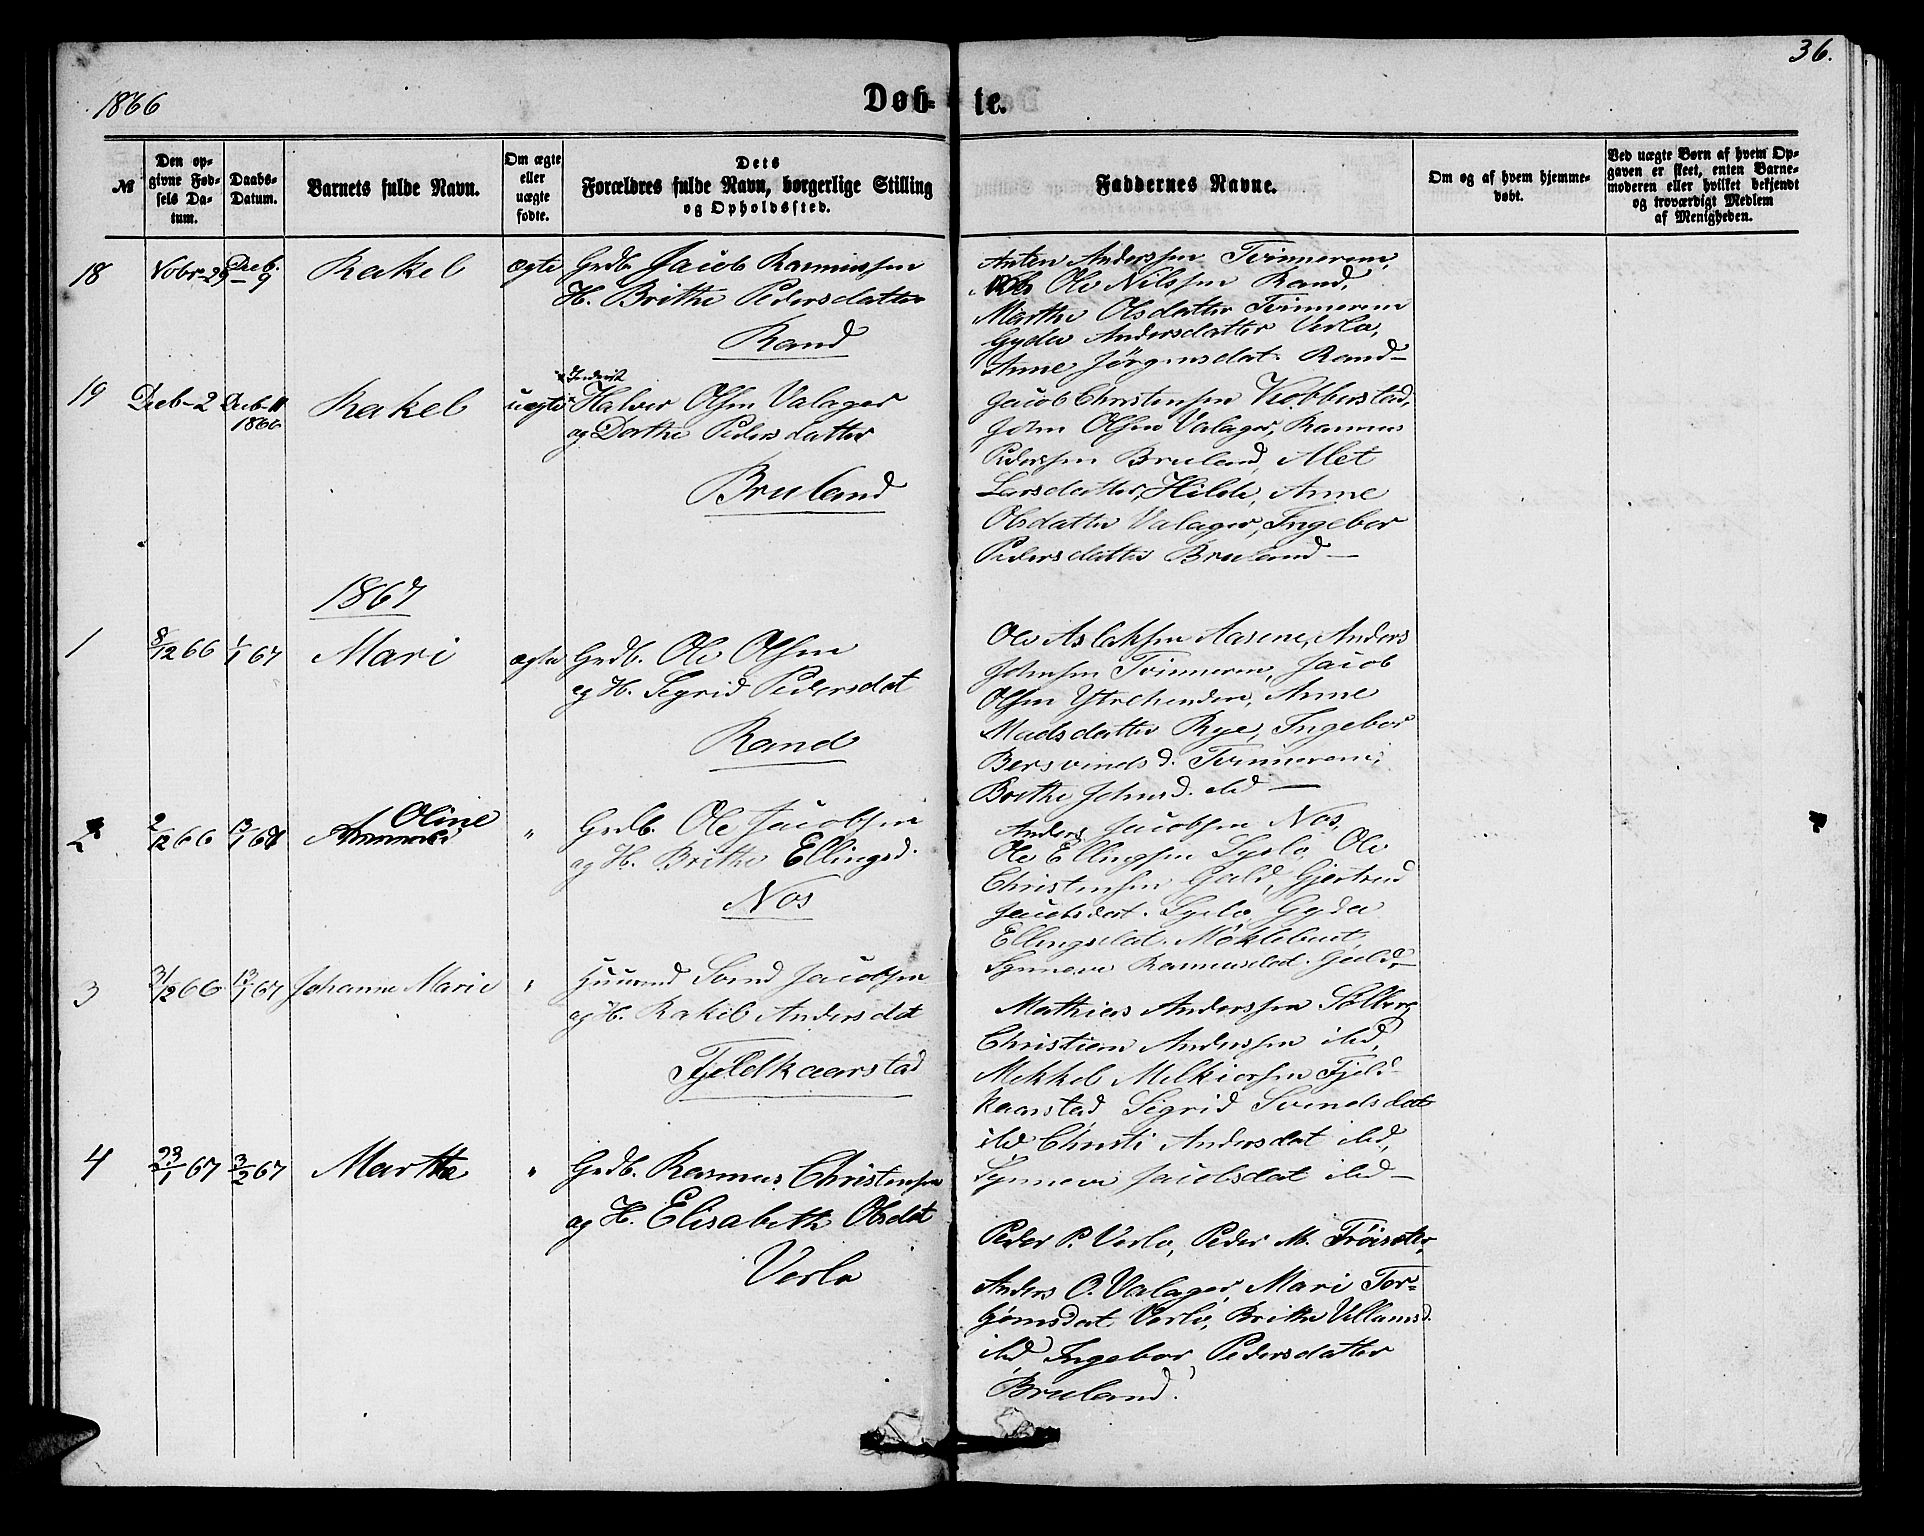 36.
1866
Døb- te.
№
Den op-
givne Fød-
sels Da-
tum.
Daabs-
Datum.
Barnets fulde Navn.
Om ægte
eller
uægte
fødte.
Dets
Forældres fulde Navn, borgerlige Stilling
og Opholdssted.
Faddernes Navne.
Om og af hvem hjemme-
døbt.
Ved uægte Børn af hvem Op-
gaven er skeet, enten Barne-
moderen eller hvilket bekjendt
og troværdigt Medlem
af Menigheden.
18 Nobr-29 Decb. 9 Rakel ægte Grdb. Jacob Rasmussen
H. Brithe Pedersdatter
Rand
Anten Anderssen Tvinnerem,
Ole Nilssen Rand,
Marthe Olsdatter Tvinnerem
Gyda Andersdatter Verlo,
Anne Jörgensdat. Rand-
19 Decb-2 Decb-11 1866 Rakel uægte Halvor Olsen Valager
og Dorthe Pedersdatter
Bruland
Jacob Christensen Kobberstad,
John Olsen Valager, Rasmus
Pederssen Bruland, Alet
Larsdatter, Hilde, Anne
Olsdatter Valager, Ingebor
Pedersdatter Bruland-
1867
1 8/12 66 1/1 67 Mari ægte Grdb. Ole Olsen
og H. Segrid Pedersdat
Rand
Ole Aslaksen Aasene, Anders
Johnsen Tvinnerem, Jacob
Olsen Ytrehenden, Anne
Madsdatter Rye, Ingebor
Bersvindsd. Tvinnerem,
Brithe Johnsd. ibd-
2 2/12 66 13/1 67 Oline " Grdb. Ole Jacobsen
og H. Brithe Ellingsd.
Nos
Anders Jacobsen Nos,
Ole Ellingsen Syslo, Ole
Christensen Gald, Gjertrud
Jacobsdat. Syslo, Gyda
Ellingsdat. Möklebust,
Synneve Rasmusdat. Gald-
3 31/12 66 13/1 67 Johanne Marie " Huusmd Svend Jacobsen
og H. Rakel Andersdat
Fjeldkaarstad
Mathias Anderssen Solberg
Christian Anderssen ibd,
Mekkel Melkiorsen Fjeld-
kaarstad Sigrid Svendsdat
ibd Christi Andersdat ibd,
Synneve Jacobsdat ibd-
4 23/1 67 3/2 67 Marthe " Grdb. Rasmus Christensen
og H. Elisabeth Olsdat
Verlo
Peder P. Verlo, Peder M. Tröiseter,
Anders O. Valager, Mari Tor-
gjernsdat Verlo, Brithe Villumsd.
ibd, Ingebor Pedersdatter
Bruland.